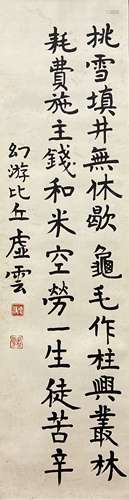 挑雪填井無休歇龜毛作柱興叢林
耗費施主錢和米空勞一生徒苦辛
幻游比丘虛雲